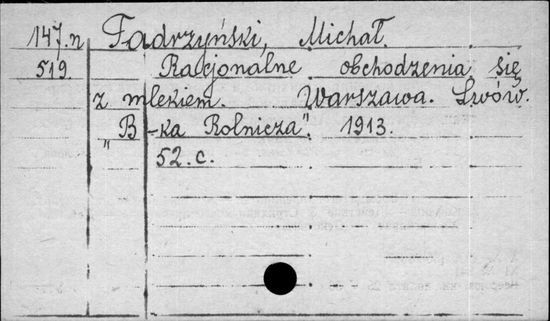 147.n Fadrzyński, Michał.
519. Racjonalne obchodzenia się
z mlekiem. Warszawa. Lwów.
„B-ka Rolnicza". 1913.
52.c.